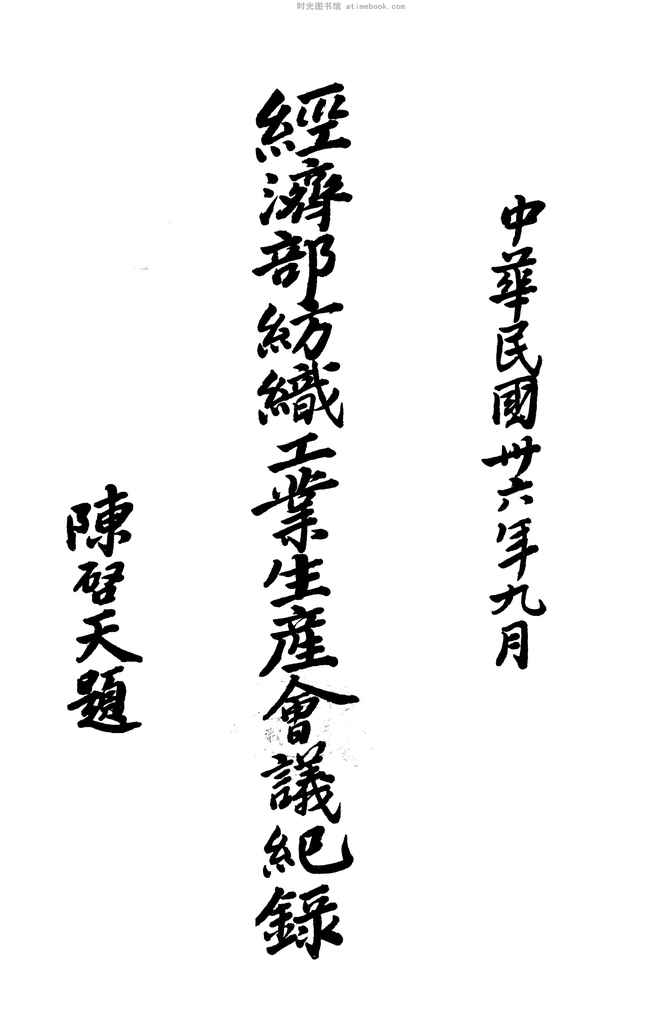 时光图书馆 atimebook.com
中華民國卅六年九月
經濟部紡織工業生產會議紀錄
陳啓天題